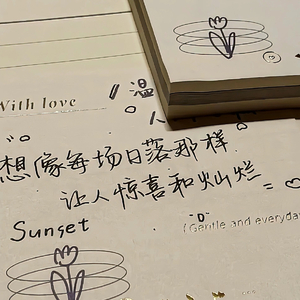 温
With love
想像每场日落那样
让人惊喜和灿烂
Sunset
"D"
(Gentle and everyday